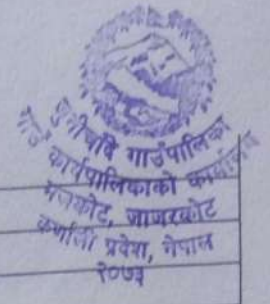 जुनीचाँदे गाउँपालिका
गाउँ कार्यपालिकाको कार्यालय
मजकोट, जाजरकोट
कर्णाली प्रदेश, नेपाल
२०७३